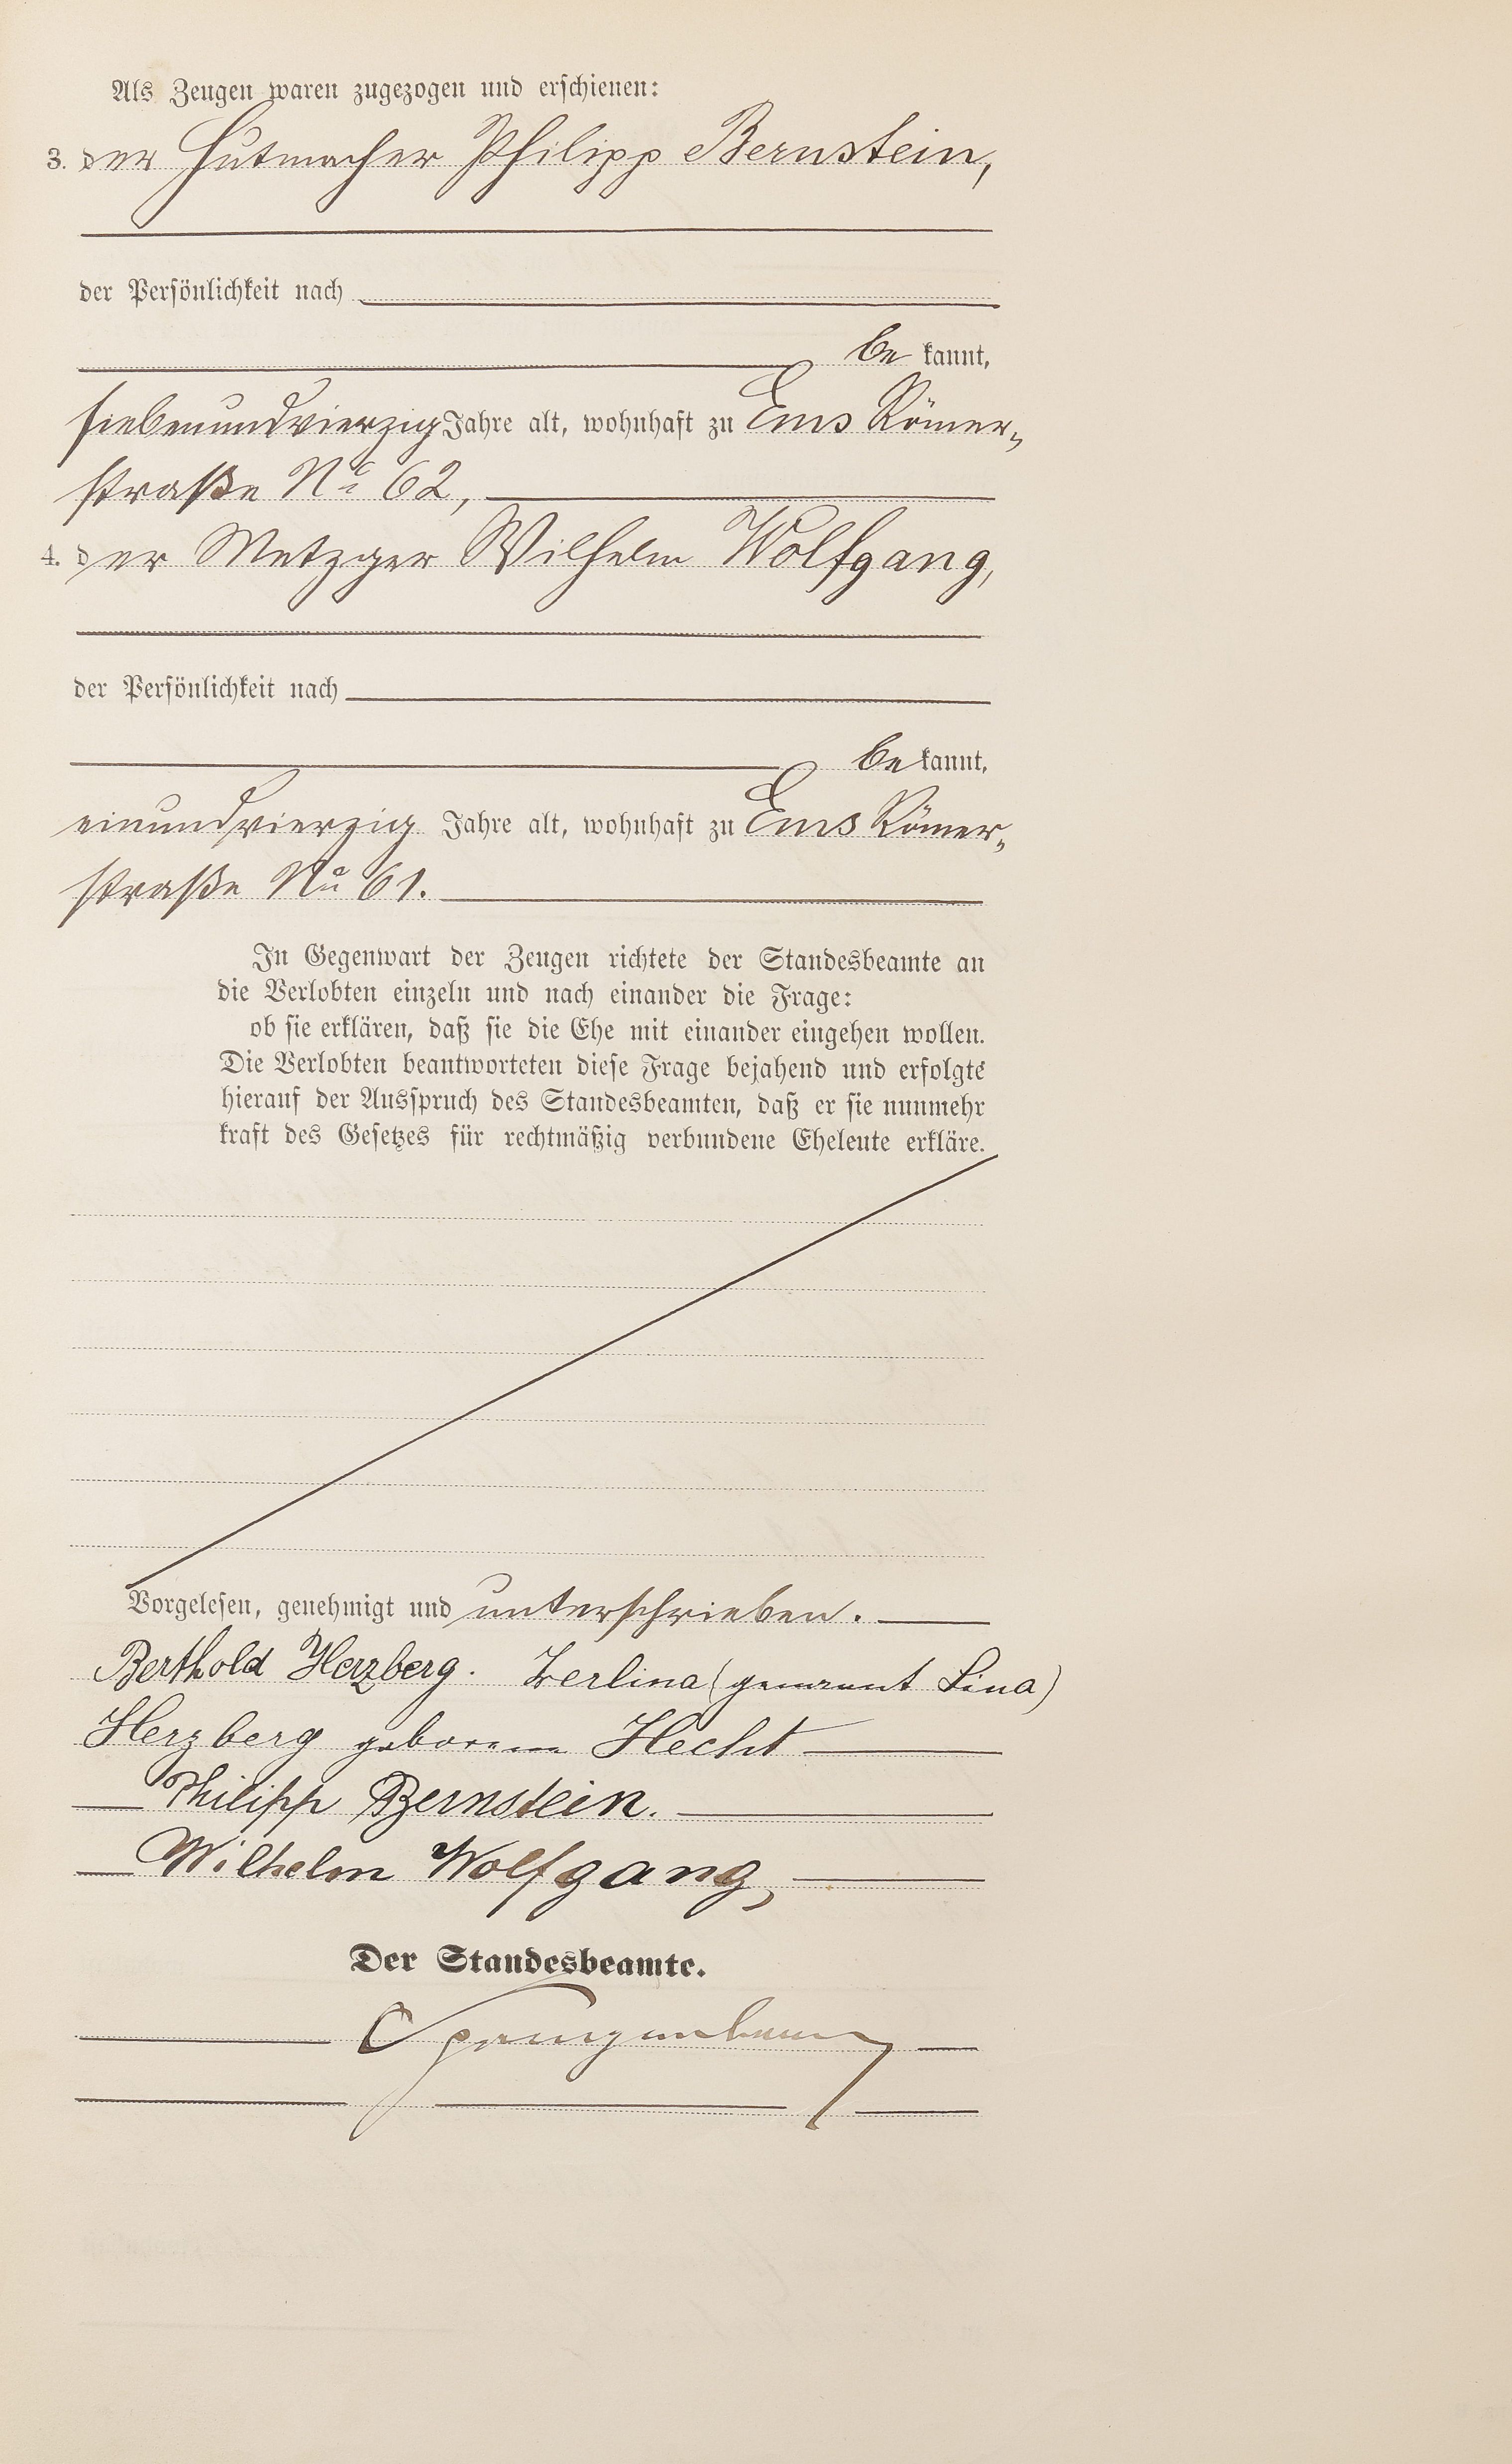 Als Zeugen waren zugezogen und erschienen:
3. der Hutmacher Philipp Bernstein,
der Persönlichkeit nach
be kannt,
siebenundvierzig Jahre alt, wohnhaft zu Ems Römer-
straße No 62,
4. der Metzger Wilhelm Wolfgang,
der Persönlichkeit nach
be kannt,
einundvierzig Jahre alt, wohnhaft zu Ems Römer-
straße No 61.
In Gegenwart der Zeugen richtete der Standesbeamte an
die Verlobten einzeln und nach einander die Frage:
ob sie erklären, daß sie die Ehe mit einander eingehen wollen.
Die Verlobten beantworteten diese Frage bejahend und erfolgte
hierauf der Ausspruch des Standesbeamten, daß er sie nunmehr
kraft des Gesetzes für rechtmäßig verbundene Eheleute erkläre.
Vorgelesen, genehmigt und unterschrieben.
Berthold Herzberg. Zerlina (genannt Lina)
Herzberg geborene Hecht
Philipp Bernstein.
Wilhelm Wolfgang,
Der Standesbeamte.